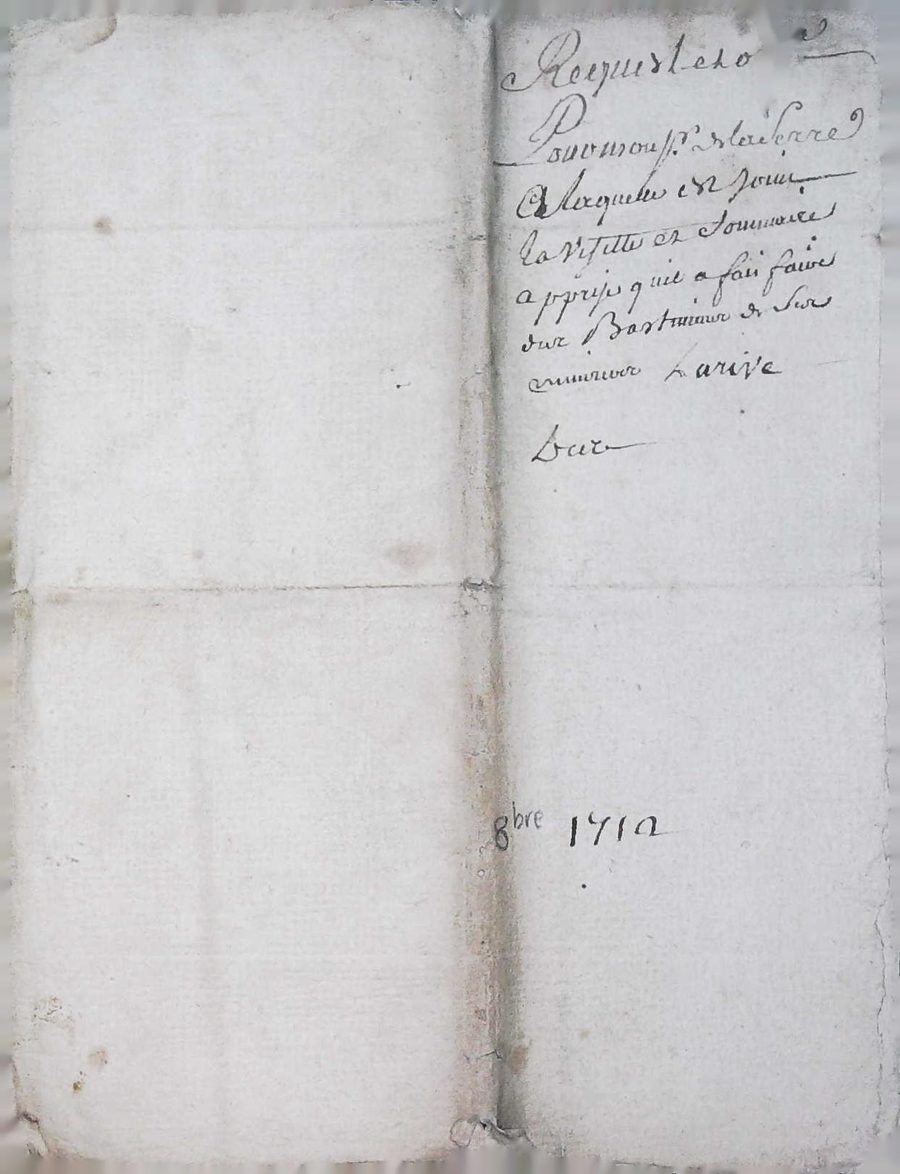 Requeste
Pour monsr. de la Serre
A laquelle est joint
la visitte et sommaire
apprise quil a fait faire
des Bastimens de
Larive
8bre 1712